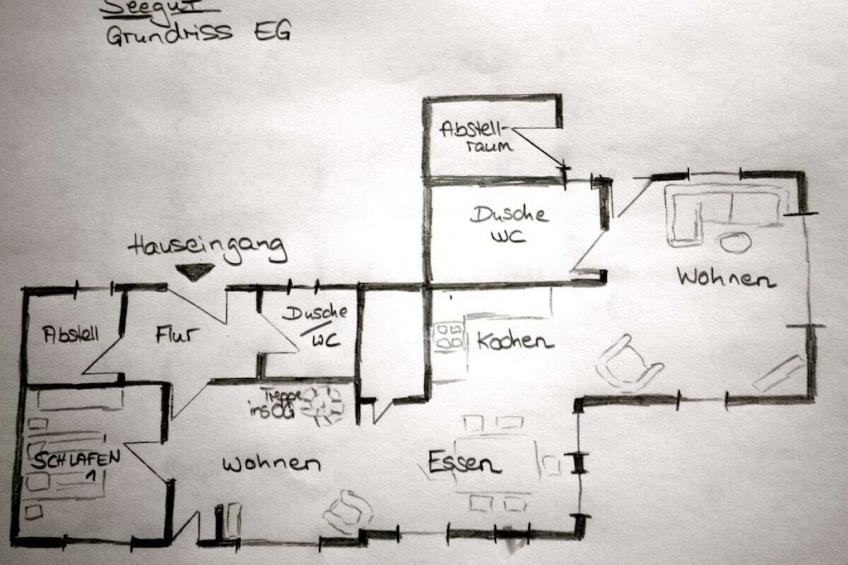 Seegut
Grundriss EG
Abstell-
raum
Dusche
WC
Hauseingang
Wohnen
Abstell
Flur
Dusche
WC
Kochen
Treppe
ins OG
SCHLAFEN
1
Wohnen
Essen